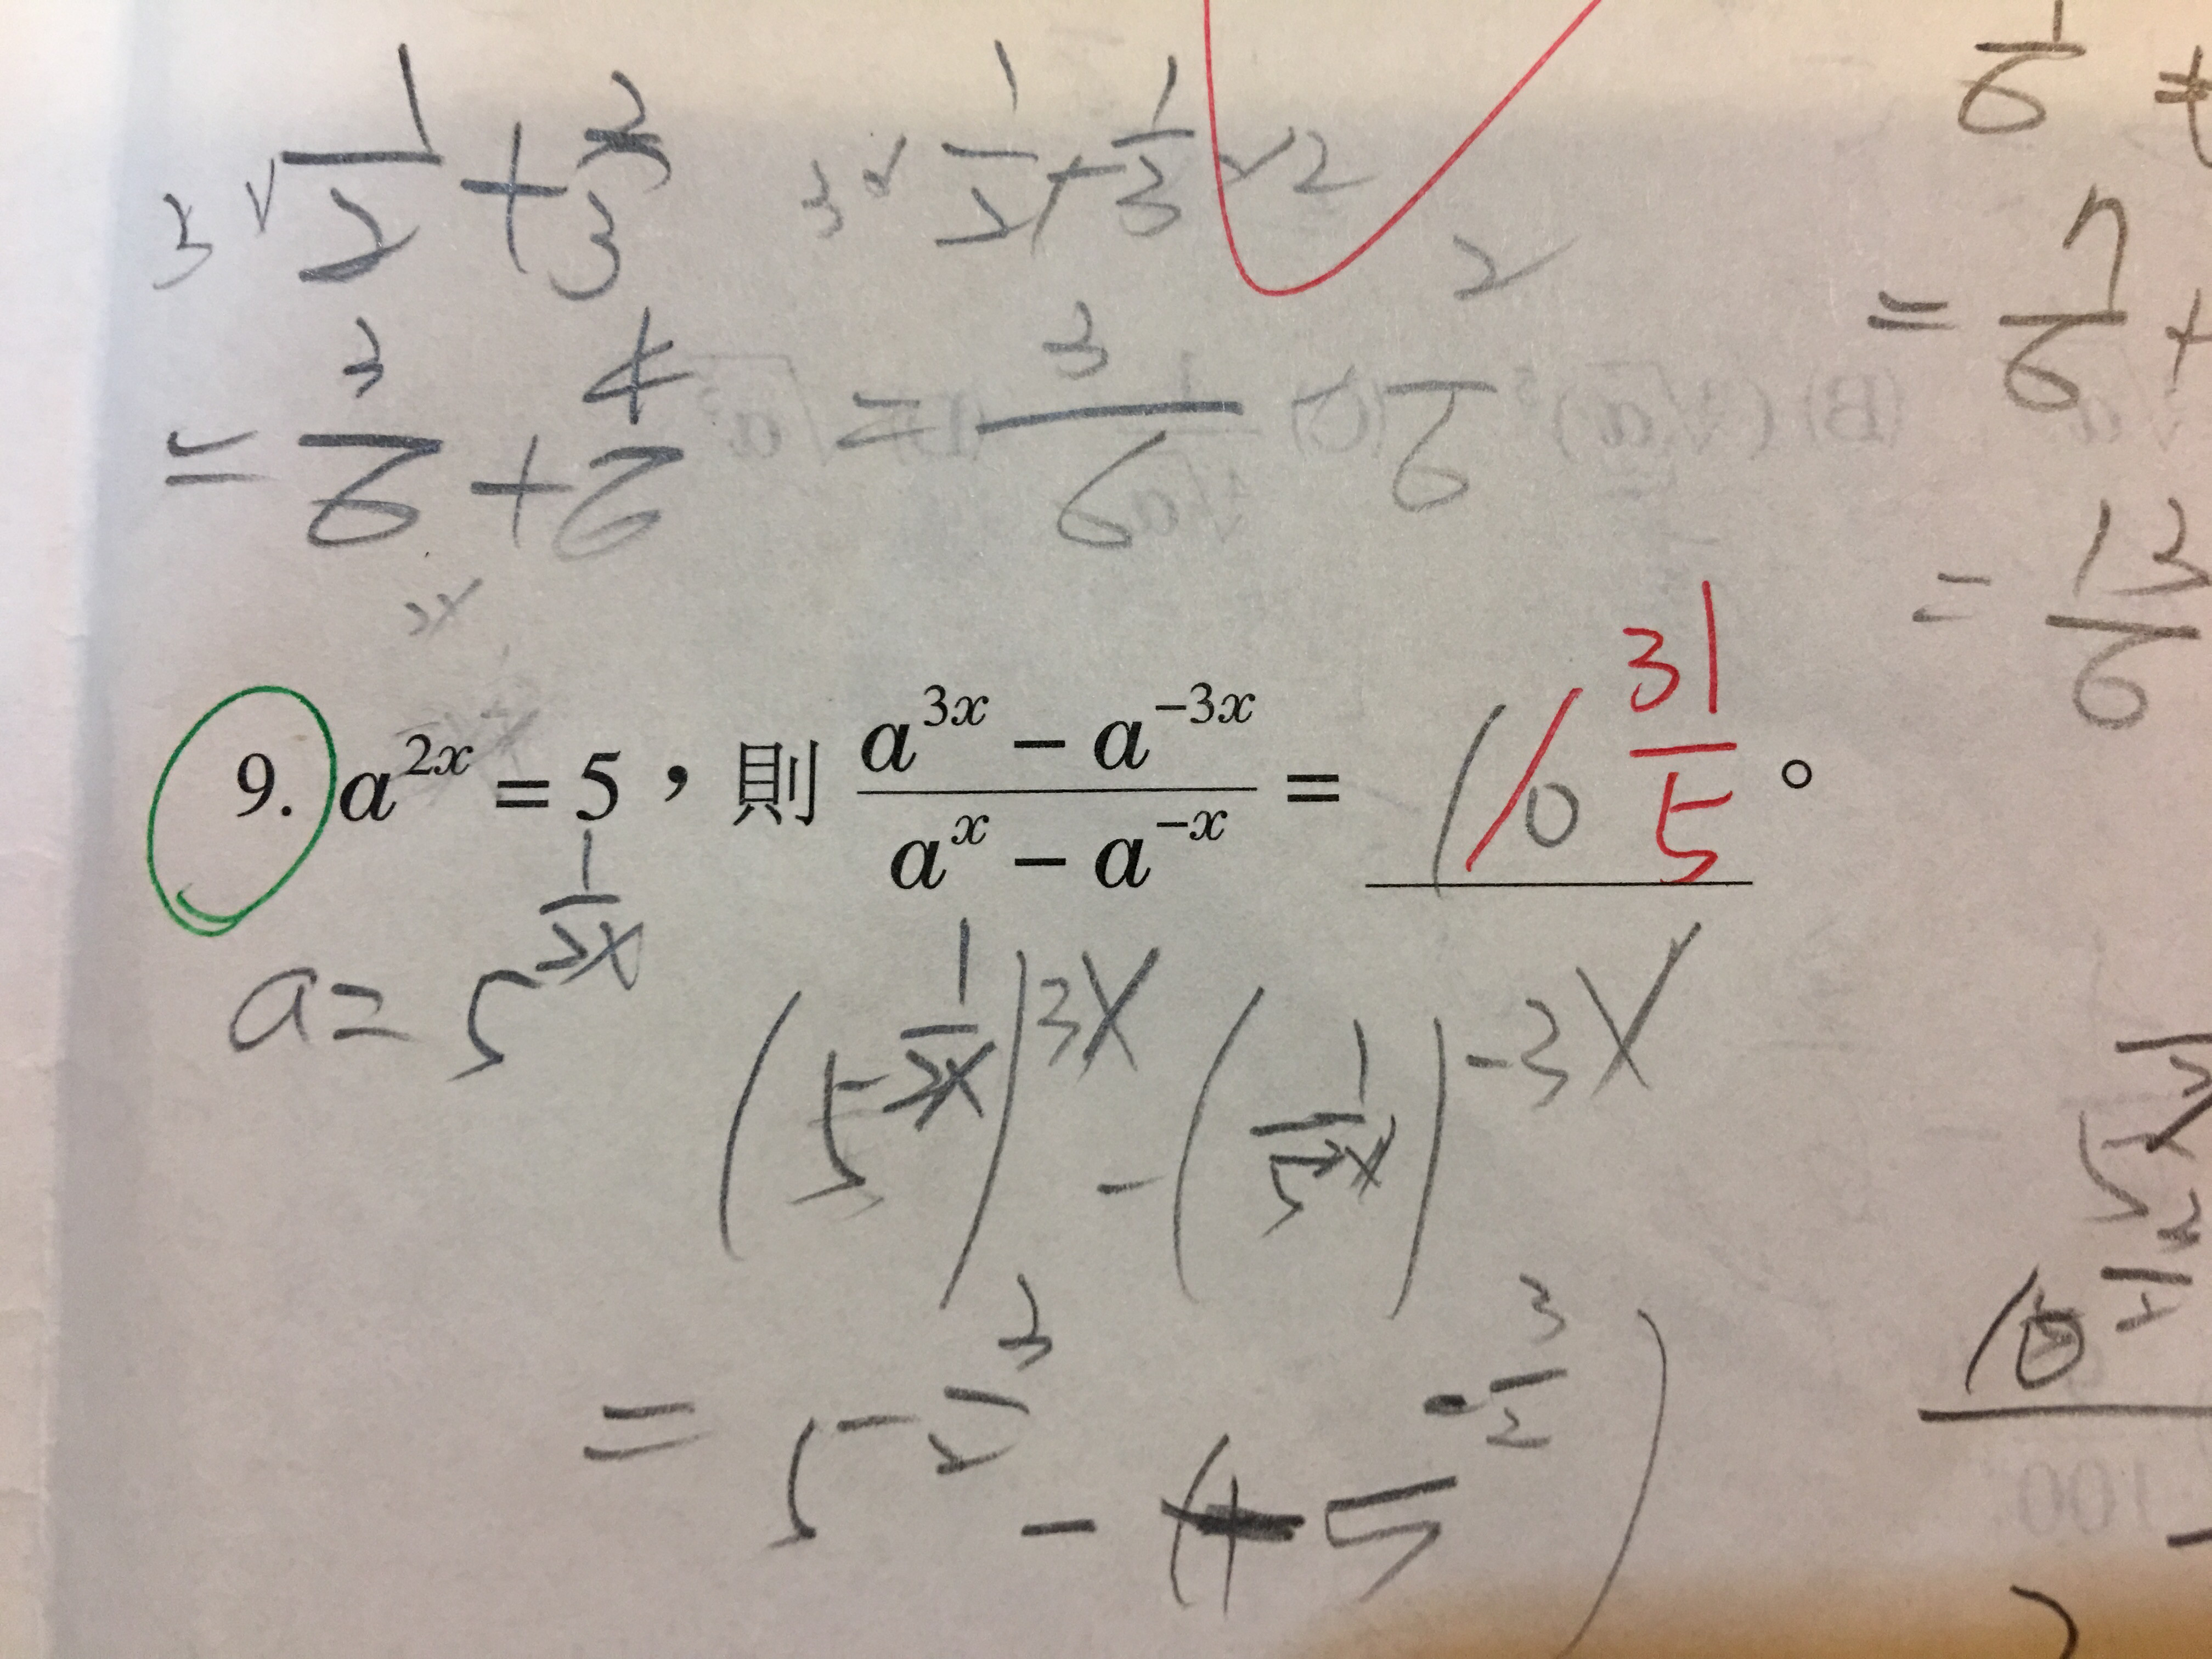 3√ 1/2 + 2/3   3√ 1/2 + 1/3 × 2
= 3/6 + 4/6   = 3/6   2/6
1/6 +
= 7/6 +
= 13/6
2x
9. a^{2x} = 5，則 \frac{a^{3x} - a^{-3x}}{a^{x} - a^{-x}} = 10 31/5 。
a = 5^{1/2x}
(5^{1/2x})^{3x} - (1/5^{2x})^{-3x}
= 5^{-3/2} - ( 5^{-3/2})